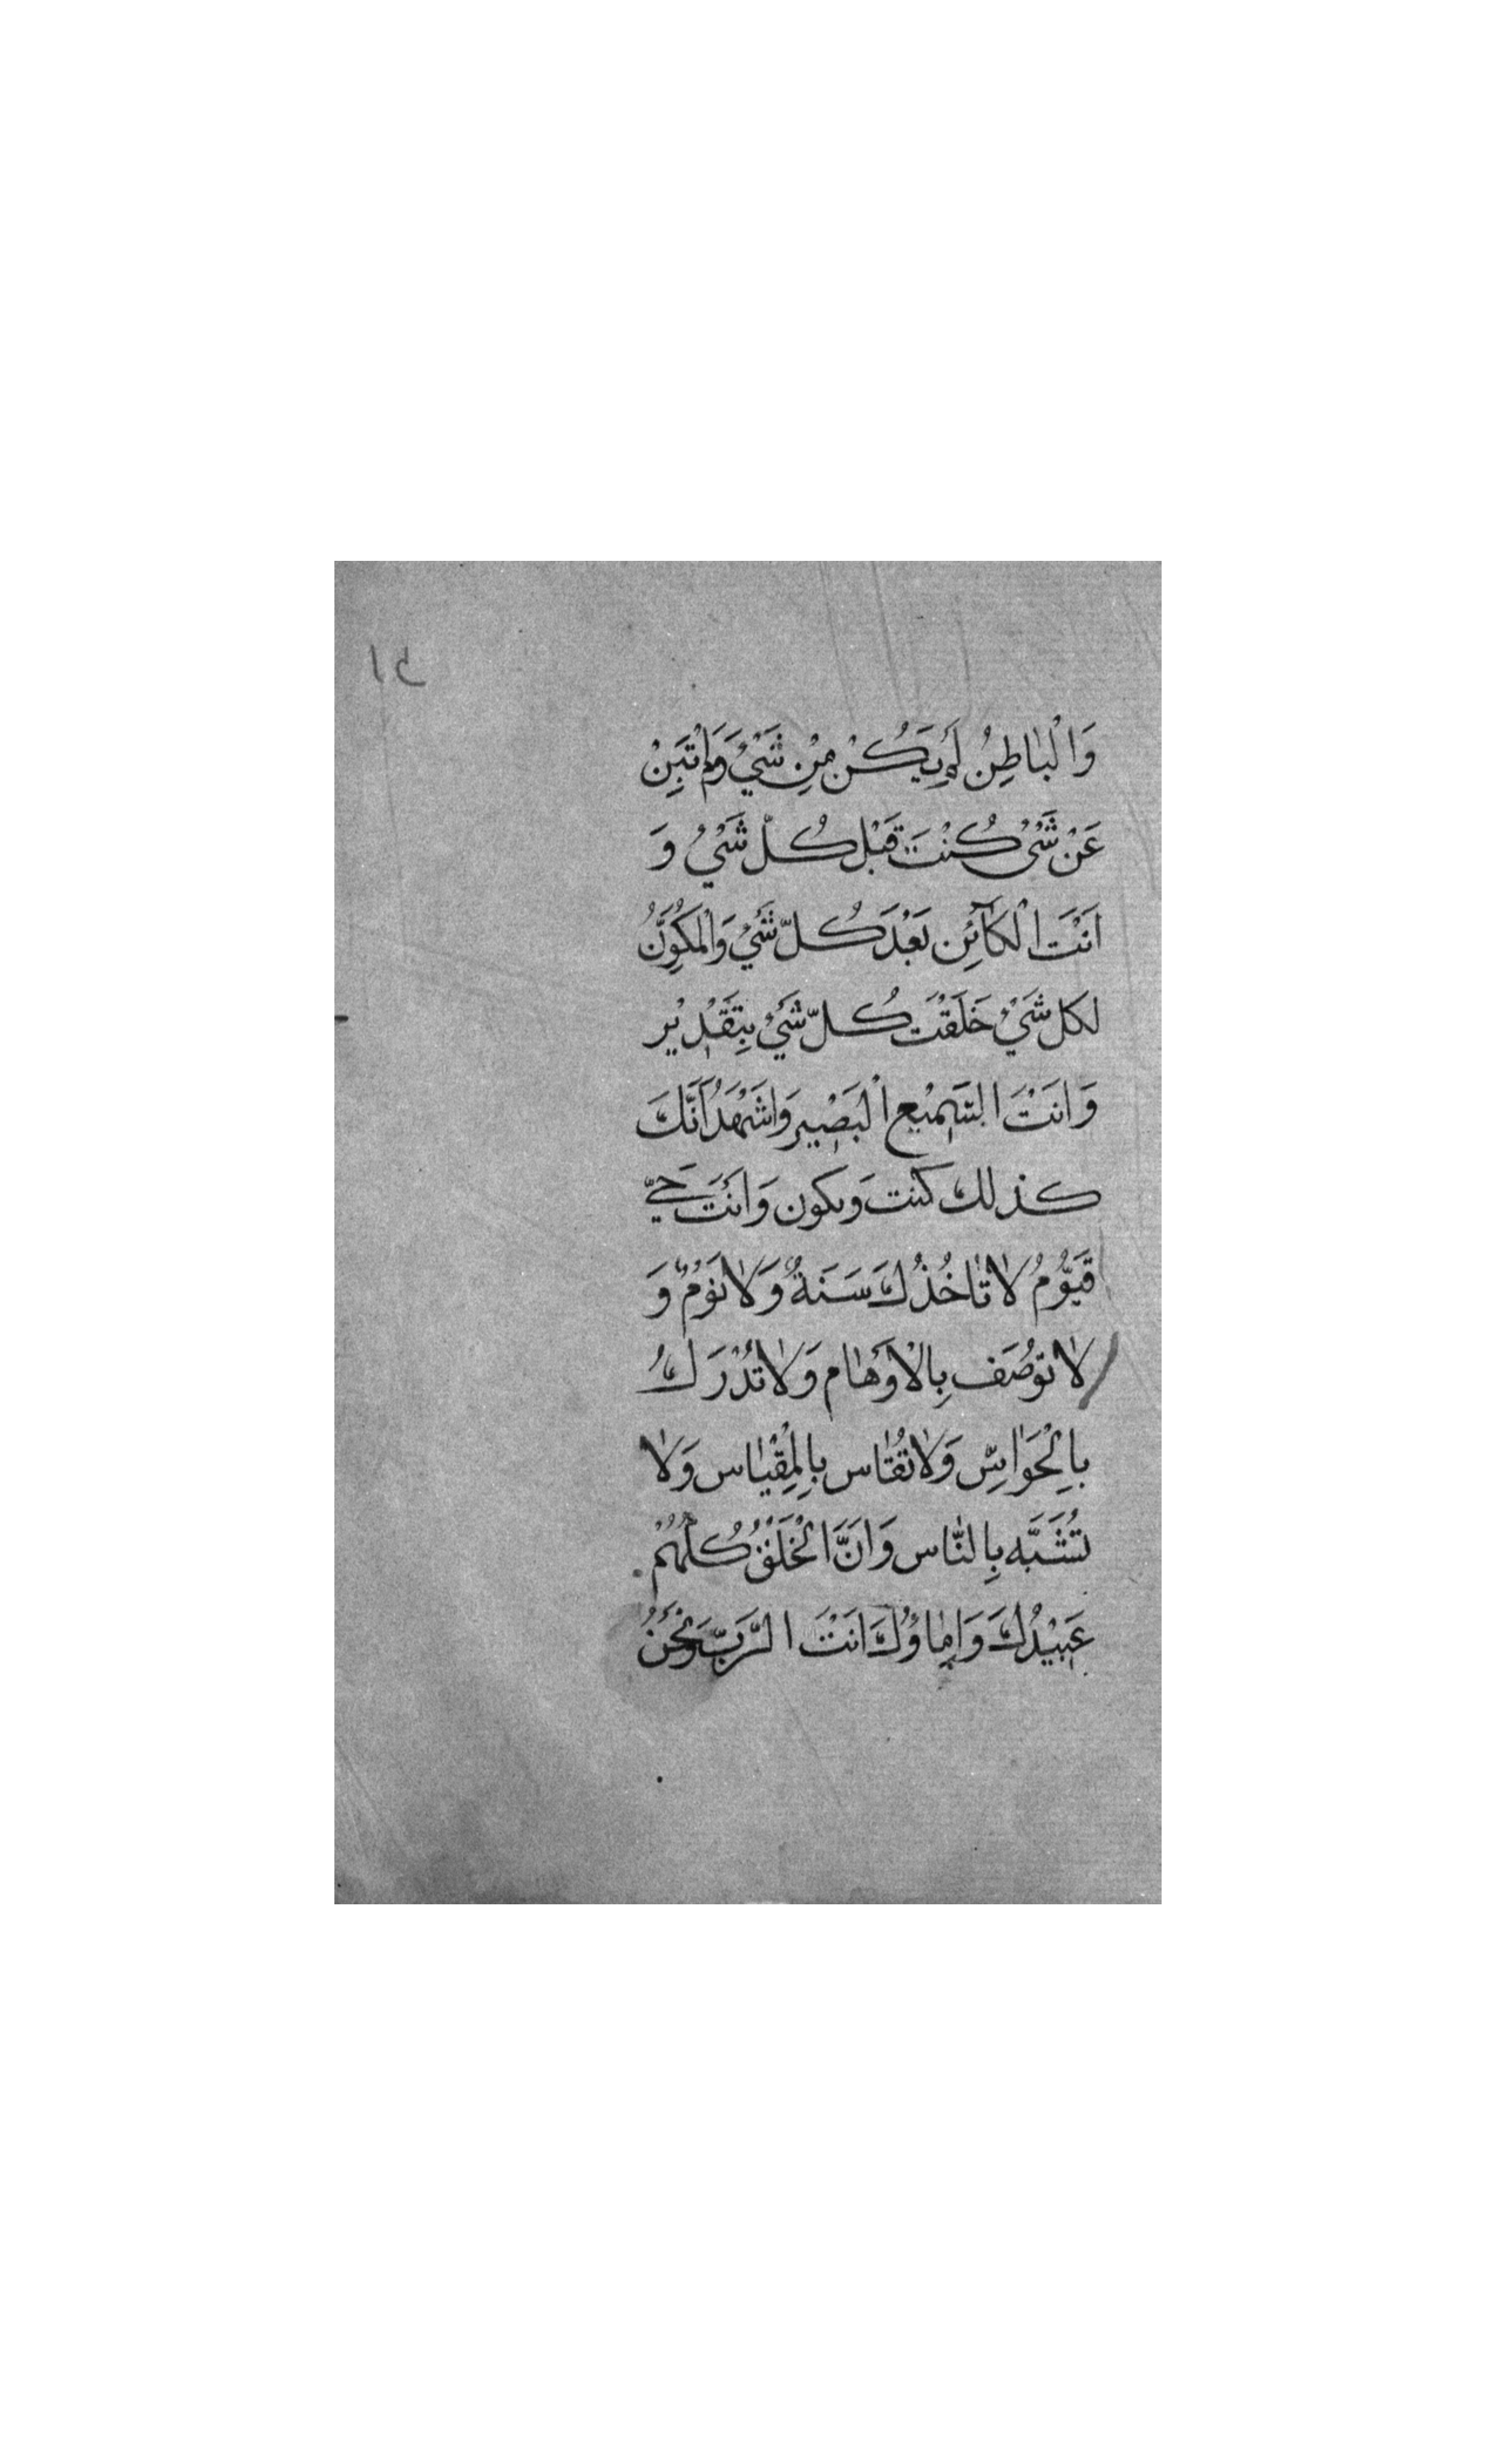 وَالْبٰاطِنُ لَمْ يَكُنْ مِنْ شَيْءٍ وَلَمْ تَبِنْ
عَنْ شَيْءٍ كُنْتَ قَبْلَ كُلِّ شَيْءٍ وَ
اَنْتَ الْكَآئِن بَعْدَ كُلِّ شَيْءٍ وَالْمُكَوِّنُ
لكل شَيْءٍ خَلَقْتَ كُلّ شَيْءٍ بِتَقْدِيْرٍ
وَانَتْ السَّمِيْع الْبَصْيِر وَاشَهْدُ اَنَّكَ
كذلك كنت وتكون وَاَنْتَ حَيّ
قَيّوُمُ لاٰ تٰاخُذُكَ سَنَةٌ وَلاٰ نَوْمٌ وَ
لاٰ توُصَف بِالْاَوْهٰام وَلاٰ تُدْرَكُ
باِلْحَوٰاسِّ وَلاٰ تُقٰاس بِالْمِقْيٰاس وَلاٰ
تُشَبَّه بِالنّٰاس وَانَّ الْخَلْقَ كُلّهُمْ
عَبِيْدُكَ وَاِمٰاوُكَ انَتْ الرَّبّ وَنَحْنُ